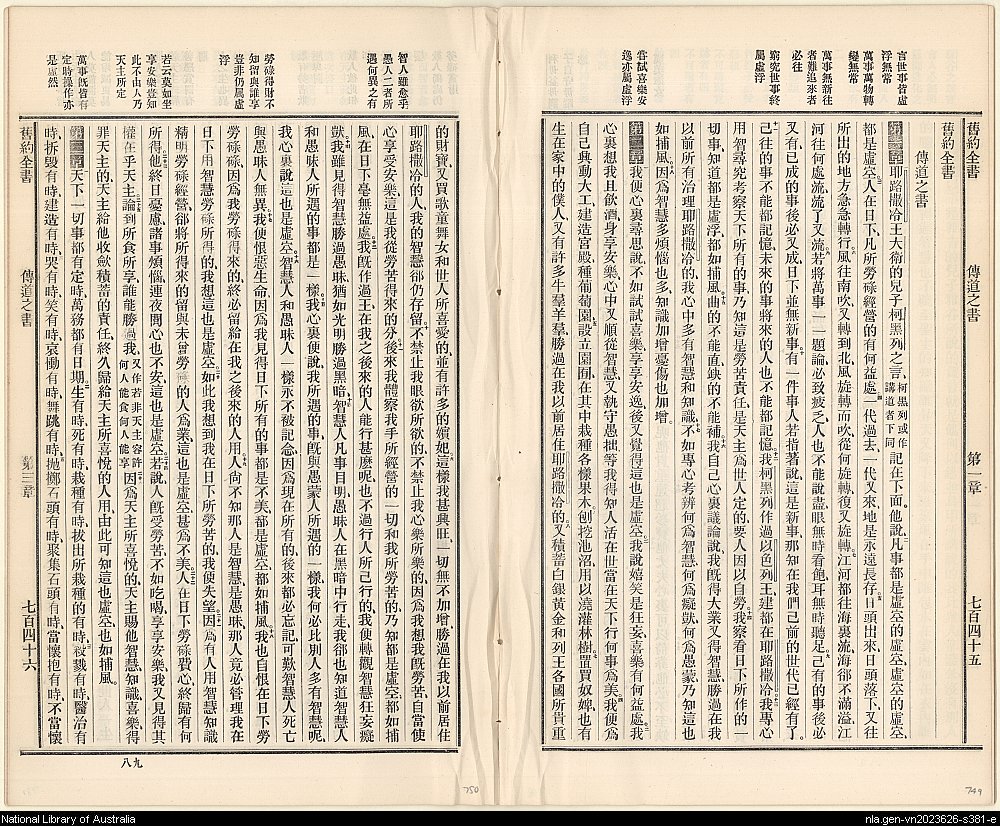 言世事皆虛
浮無常
萬事萬物轉
變無常
萬事無新往
者難追來者
必往
窮究世事終
屬虛浮
嘗試喜樂安
逸亦屬虛浮
舊約全書
傳道之書
第一章
七百四十五
舊約全書
傳道之書
傳道之書
第一章 耶路撒冷王大衛的兒子柯黑列之言、柯黑列或作講道者下同記在下面。他說凡事都是虛空的虛空、虛空的虛空、
都是虛空。人在日下、凡所勞碌經營的有何益處。一代過去、一代又來、地是永遠長存。日頭出來、日頭落下、又往
所出的地方急急轉行。風往南吹、又轉到北、風旋轉而吹、從何旋轉、復又旋轉。江河都往海裏流、海卻不滿溢、江
河往何處流、流了又流。若將萬事一一題論、必致疲乏、人也不能說盡、眼無時看飽、耳無時聽足。已有的事後必
又有、已成的事後必又成、日下並無新事。有一件事人若指著說、這是新事、那知在我們已前的世代已經有了。
已往的事不能都記憶、未來的事將來的人也不能都記憶。我柯黑列作過以色列王、建都在耶路撒冷。我專心
用智尋究考察天下所有的事、乃知這是勞苦責任、是天主爲世人定的、要人因以自勞。我察看日下所作的一
切事、知道都是虛浮、都如捕風。曲的不能直、缺的不能補。我自己心裏議論說、我既得大業、又得智慧、勝過在我
以前所有治理耶路撒冷的、我心中多有智慧和知識。不如專心考辨何爲智慧、何爲癡獃、何爲愚蒙、乃知這也
如捕風。因爲智慧多煩惱也多、知識加增、憂傷也加增。
第二章 我便心裏尋思說、不如試試喜樂、享享安逸、後又覺得這也是虛空。我說嬉笑是狂妄、喜樂有何益處。我
心裏想、我且飲酒、身享安樂、心中又順從智慧、又執守愚拙、等我得知人活在世當在天下行何事爲美。我便爲
自己興動大工、建造宮殿、種葡萄園。設立園囿、在其中栽種各樣果木。刨挖池沼、用以澆灌林樹。置買奴婢、也有
生在家中的僕人、又有許多牛羣羊羣、勝過在我以前居住耶路撒冷的。又積蓄白銀黃金、和列王各國所貴重
749
智人雖愈乎
愚人二者所
遇何異之有
勞碌得財不
知留與誰享
豈非仍屬虛
浮
若云莫如坐
享安樂豈知
此不由人乃
天主所定
萬事既皆有
定時操作亦
是虛然
的財寶、又買歌童舞女、和世人所喜愛的、並有許多的嬪妃。這樣我甚興旺、一切無不加增、勝過在我以前居住
耶路撒冷的人、我的智慧卻仍存留。不禁止我眼欲所欲的、不禁止我心樂所樂的、因爲我想我既勞苦、自當使
心享受安樂、這是我從勞苦得來的分。後來我體察我手所經營的一切、和我所勞苦的、乃知都是虛空、都如捕
風、在日下毫無益處。我既作過王、在我之後來的人能行甚麽呢、也不過行人所已行的、我便轉觀智慧狂妄癡
獃。我雖見得智慧勝過愚昧、猶如光明勝過黑暗。智慧人凡事目明、愚昧人在黑暗中行走、我卻也知道智慧人
和愚昧人所遇的事都是一樣。我心裏便說、我所遇的事、既與愚蒙人所遇的一樣、我何必比別人多有智慧呢、
我心裏說、這也是虛空。智慧人和愚昧人一樣、永不被記念、因爲現在所有的、後來都必忘記、可歎智慧人死亡
與愚昧人無異。我便恨惡生命、因爲我見得日下所有的事都是不美、都是虛空、都如捕風。我也自恨在日下勞
勞碌碌、因爲我勞碌得來的、終必留給在我之後來的人用。人尚不知那人是智慧是愚昧、那人竟必管理我在
日下用智慧勞碌所得的、我想這也是虛空。如此我想到我在日下所勞苦的、我便失望。因爲有人用智慧知識
精明勞碌經營、卻將所得來的留與未曾勞碌的人爲業、這也是虛空、甚爲不美。人在日下勞碌費心、終歸有何
所得。他終日憂慮、諸事煩惱、連夜間心也不安、這也是虛空。若說人既受勞苦、不如喫喝享享安樂、我又見得其
權在乎天主。論到所食所享、誰能勝過我。又作若非天主容許何人能食何人能享因爲天主所喜悅的、天主賜他智慧知識喜樂、得
罪天主的、天主給他收斂積蓄的責任、終久歸給天主所喜悅的人用、由此可知這也虛空、也如捕風。
第三章 天下一切事都有定時、萬務都有日期。生有時、死有時、栽種有時、拔出所栽種的有時。殺戮有時、醫治有
時、拆毀有時、建造有時。哭有時、笑有時、哀慟有時、舞跳有時。拋擲石頭有時、聚集石頭有時、當懷抱有時、不當懷
舊約全書
傳道之書
第三章
七百四十六
九八
750
National Library of Australia
nla.gen-vn2023626-s381-e